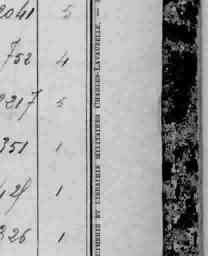 2041 5
752 4
2217 5
351 1
428 1
326 1
IMPRIMERIE ET LIBRAIRIE MILITAIRES CHARLES-LAVAUZELLE. —